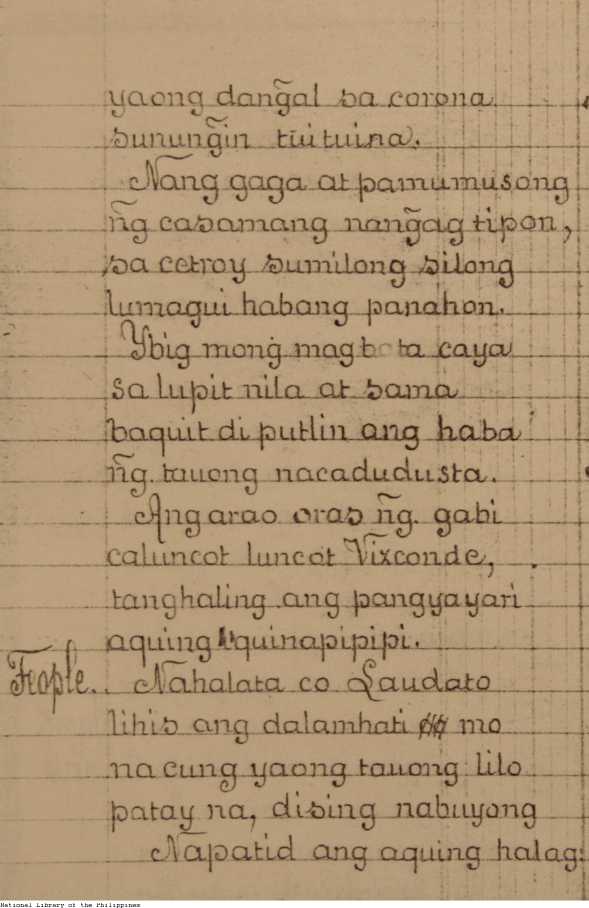 yaong dang̃al sa corona
sunung̃in tuituina.
Nang gaga at pamumusong
ng̃ casamang nang̃ag tipon,
sa cetroy sumilong silong
lumagui habang panahon.
Ybig mong magbata caya
sa lupit nila at sama
baquit di putlin ang haba
ng̃. tauong nacadudusta.
Ang arao oras ng̃. gabi
caluncot luncot Vixconde,
tanghaling ang pangyayari
aquing quinapipipi.
Nahalata co Laudato
lihis ang dalamhati mo
na cung yaong tauong lilo
patay na, dising nabuyong
Napatid ang aquing halag:
National Library of the Philippines